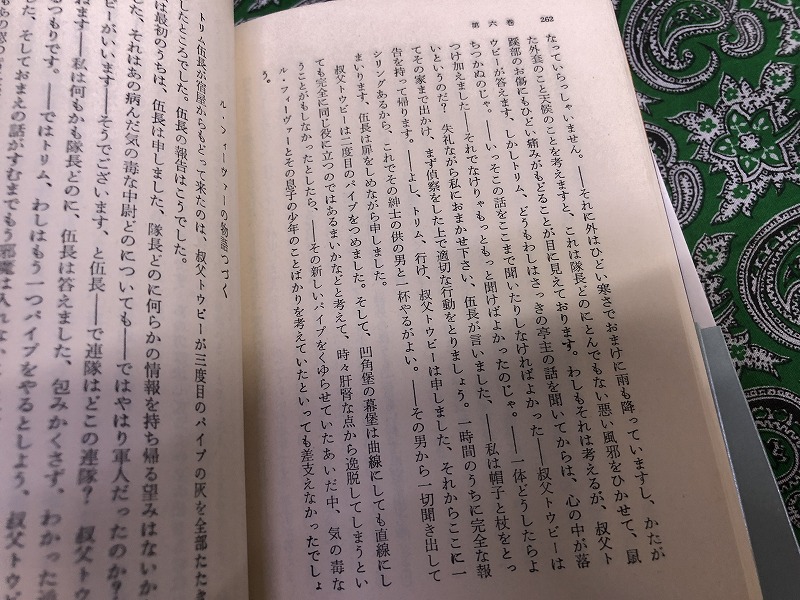 262
第六巻
なっていらっしゃいません。――それに外はひどい寒さでおまけに雨も降っていますし、かたが
た外套のこと天候のことを考えますと、これは隊長どのにとんでもない悪い風邪をひかせて、鼠
蹊部のお傷にもひどい痛みがもどることが目に見えております。わしもそれは考えるが、叔父ト
ウビーが答えます、しかしトリム、どうもわしはさっきの亭主の話を聞いてからは、心の中が落
ちつかぬのじゃ。――いっそこの話をここまで聞いたりしなければよかった――叔父トウビーは
つけ加えました――それでなけりゃもっともっと聞けばよかったのじゃ。――一体どうしたらよ
いというのだ? 失礼ながら私におまかせ下さい、伍長が言いました、――私は帽子と杖をとっ
てその家まで出かけ、まず偵察をした上で適切な行動をとりましょう。一時間のうちに完全な報
告を持って帰ります。――よし、トリム、行け、叔父トウビーは申しました、それからここに一
シリングあるから、これでその紳士の供の男と一杯やるがよい。――その男から一切聞き出して
まいります、伍長は扉をしめながら申しました。
叔父トウビーは二度目のパイプをつめました。そして、凹角堡の幕堡は曲線にしても直線にし
ても完全に同じ役に立つのではあるまいかなどと考えて、時々肝腎な点から逸脱してしまうとい
うことがもしなかったとしたら、――その新しいパイプをくゆらせていたあいだ中、気の毒な
ル・フィーヴァーとその息子の少年のことばかりを考えていたといっても差支えなかったでしょ
う。
ル・フィーヴァーの物語つづく
トリム伍長が宿屋からもどって来たのは、叔父トウビーが三度目のパイプの灰を全部たたき
したところでした。伍長の報告はこうでした。
は最初のうちは、伍長は申しました、隊長どのに何らかの情報を持ち帰る望みはないか
た、それはあの病んだ気の毒な中尉どのについても――ではやはり軍人だったのか?
ビーがいいます――そうでございます、と伍長――で連隊はどこの連隊? 叔父トウビ
ます――私は何もかも隊長どのに、伍長は答えました、包みかくさず、わかった通
つもりです。――ではトリム、わしはもう一つパイプをやるとしよう、叔父トウビ
た、そしておまえの話がすむまでもう邪魔は入れない